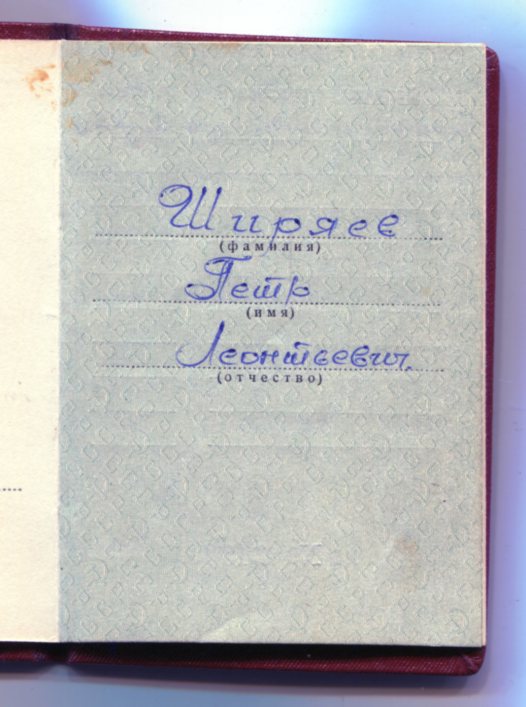 Ширяев
(фамилия)
Петр
(имя)
Леонтьевич
(отчество)